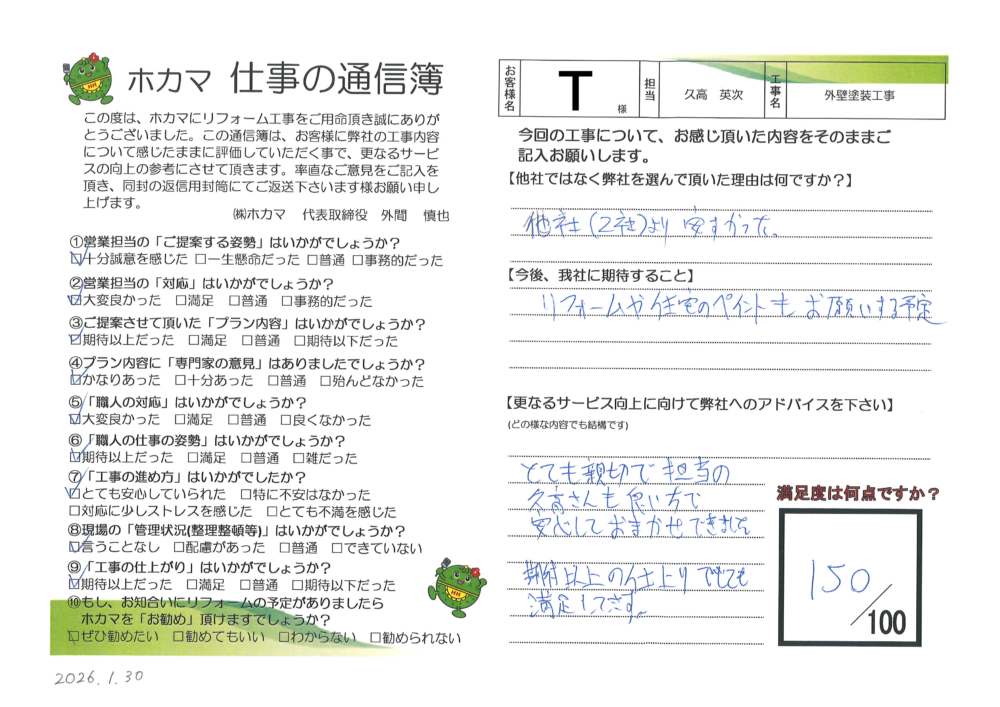 ホカマ 仕事の通信簿
この度は、ホカマにリフォーム工事をご用命頂き誠にありが
とうございました。この通信簿は、お客様に弊社の工事内容
について感じたままに評価していただく事で、更なるサービ
スの向上の参考にさせて頂きます。率直なご意見をご記入を
頂き、同封の返信用封筒にてご返送下さいます様お願い申し
上げます。
㈱ホカマ 代表取締役 外間 慎也
①営業担当の「ご提案する姿勢」はいかがでしょうか？
☑十分誠意を感じた □一生懸命だった □普通 □事務的だった
②営業担当の「対応」はいかがでしょうか？
☑大変良かった □満足 □普通 □事務的だった
③ご提案させて頂いた「プラン内容」はいかがでしょうか？
☑期待以上だった □満足 □普通 □期待以下だった
④プラン内容に「専門家の意見」はありましたでしょうか？
☑かなりあった □十分あった □普通 □殆んどなかった
⑤「職人の対応」はいかがでしょうか？
☑大変良かった □満足 □普通 □良くなかった
⑥「職人の仕事の姿勢」はいかがでしょうか？
☑期待以上だった □満足 □普通 □雑だった
⑦「工事の進め方」はいかがでしたか？
☑とても安心していられた □特に不安はなかった
□対応に少しストレスを感じた □とても不満を感じた
⑧現場の「管理状況(整理整頓等)」はいかがでしょうか？
☑言うことなし □配慮があった □普通 □できていない
⑨「工事の仕上がり」はいかがでしょうか？
☑期待以上だった □満足 □普通 □期待以下だった
⑩もし、お知合いにリフォームの予定がありましたら
ホカマを「お勧め」頂けますでしょうか？
☑ぜひ勧めたい □勧めてもいい □わからない □勧められない
2026.1.30
お客様名 T 様 担当 久高 英次 工事名 外壁塗装工事
今回の工事について、お感じ頂いた内容をそのままご
記入お願いします。
【他社ではなく弊社を選んで頂いた理由は何ですか？】
他社(2社)より安すかった。
【今後、我社に期待すること】
リフォームや住宅のペイントもお願いする予定
【更なるサービス向上に向けて弊社へのアドバイスを下さい】
(どの様な内容でも結構です)
とても親切で担当の
久高さんも良い方で
安心しておまかせできました
期待以上の仕上りでとても
満足してます。
満足度は何点ですか？
150
/100